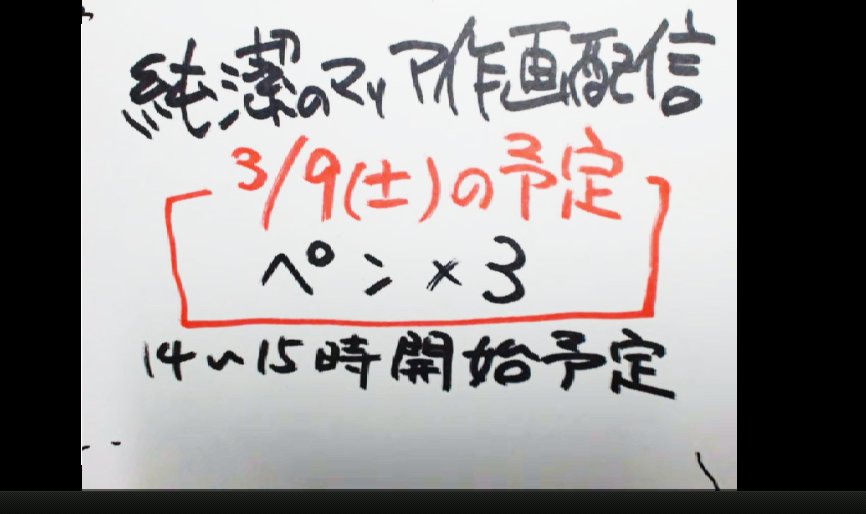 純潔のマリア作画配信
3/9(土)の予定
ペン×3
14~15時開始予定